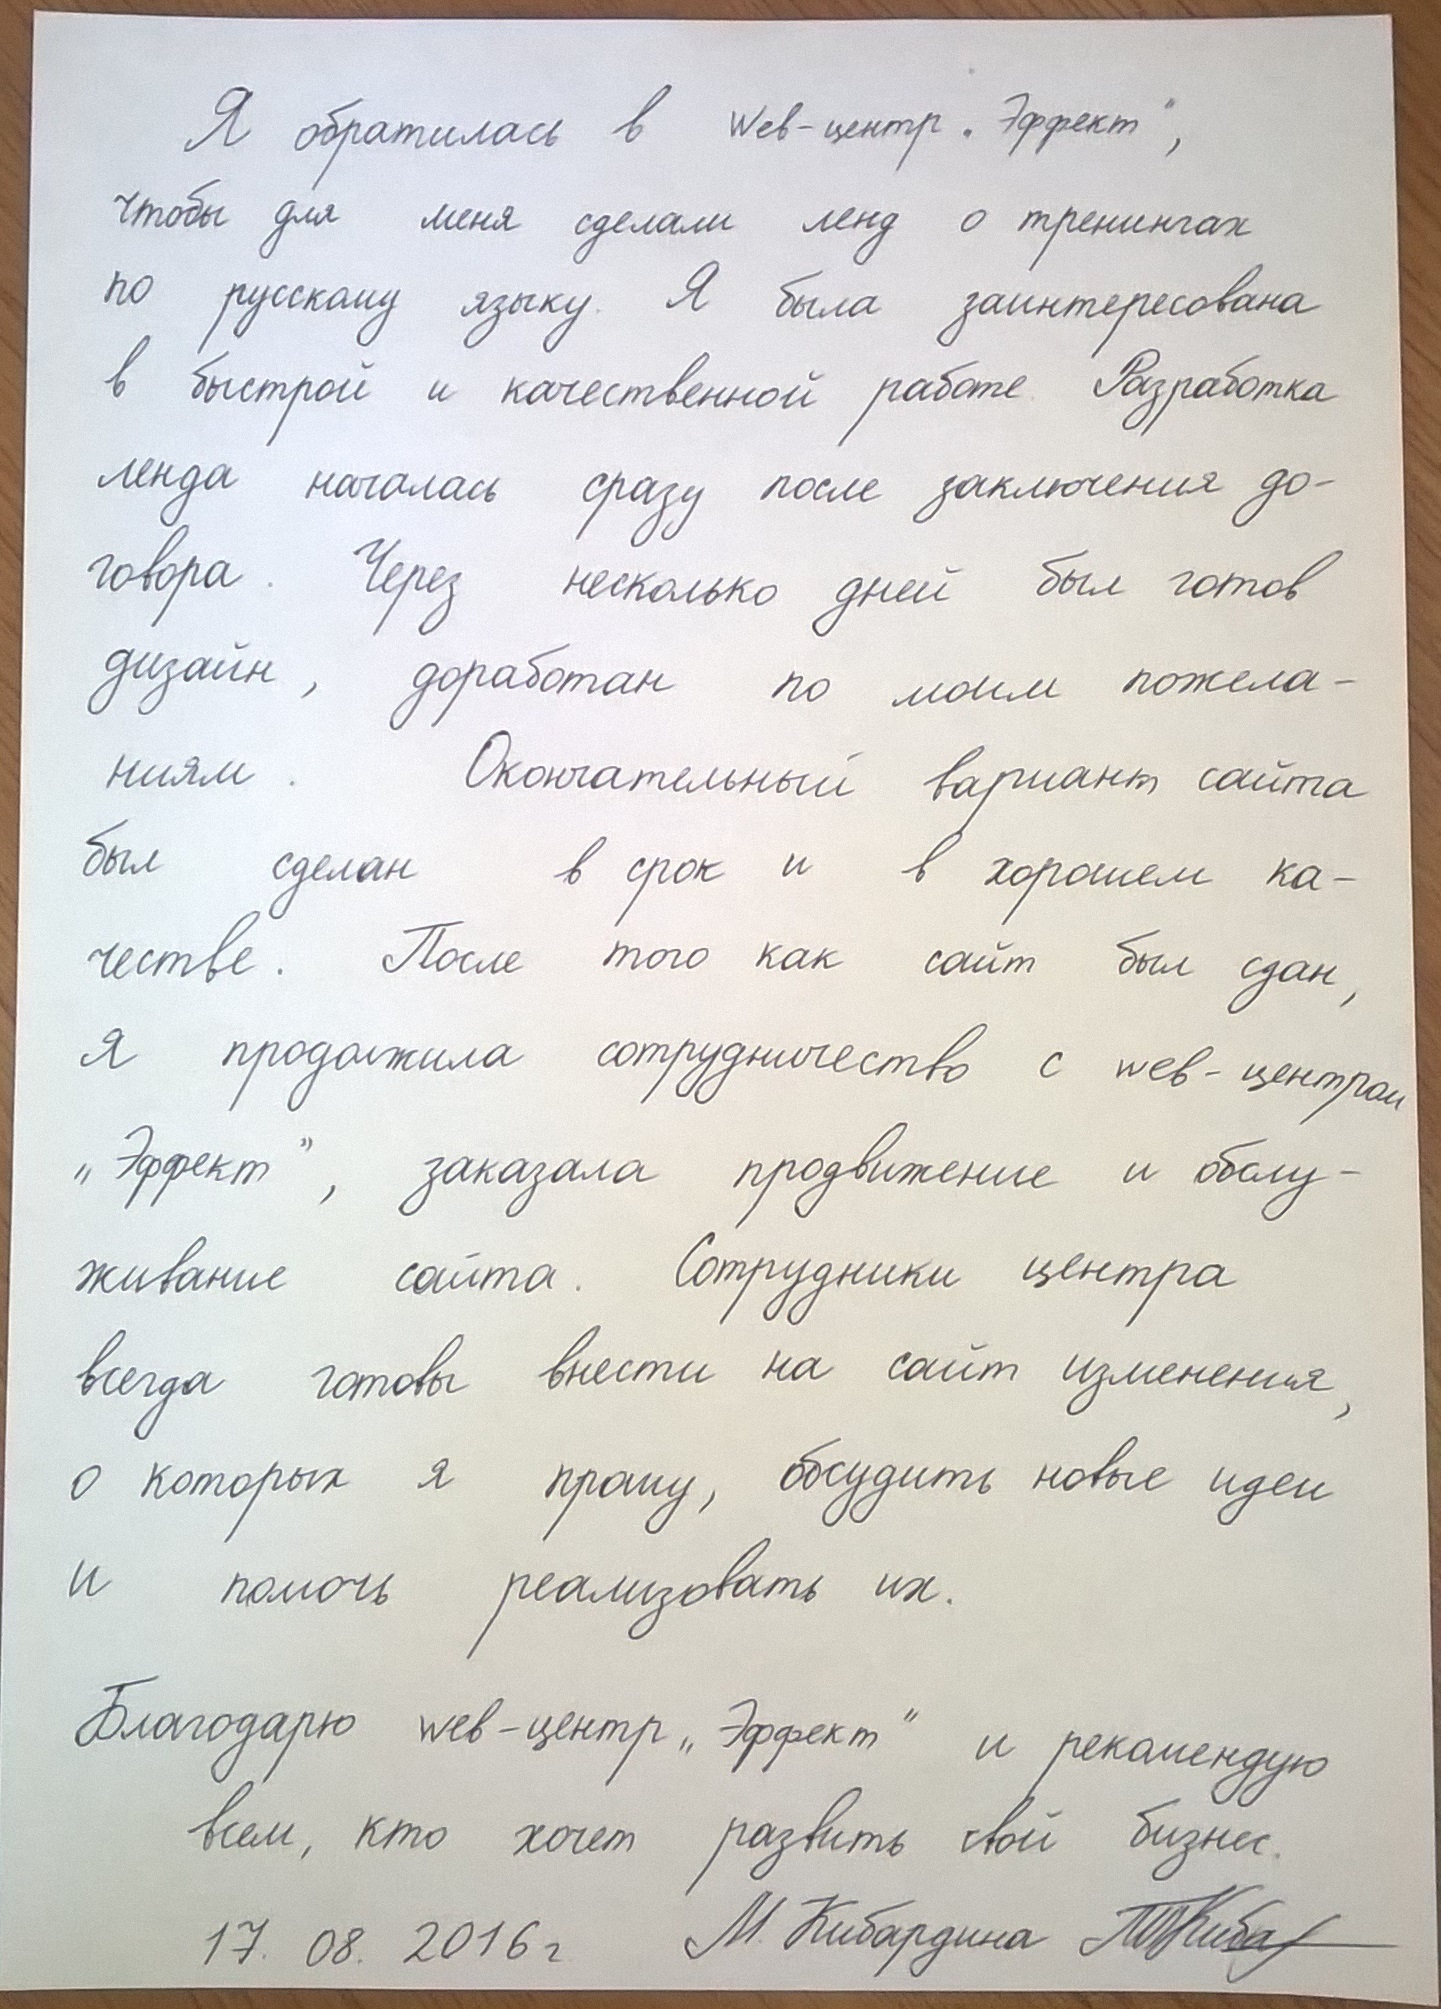 Я обратилась в Web-центр „Эффект",
чтобы для меня сделали ленд о тренингах
по русскому языку. Я была заинтересована
в быстрой и качественной работе. Разработка
ленда началась сразу после заключения до-
говора. Через несколько дней был готов
дизайн, доработан по моим пожела-
ниям. Окончательный вариант сайта
был сделан в срок и в хорошем ка-
честве. После того как сайт был сдан,
я продолжила сотрудничество с web-центром
„Эффект", заказала продвижение и обслу-
живание сайта. Сотрудники центра
всегда готовы внести на сайт изменения,
о которых я прошу, обсудить новые идеи
и помочь реализовать их.
Благодарю web-центр „Эффект" и рекомендую
всем, кто хочет развить свой бизнес.
17. 08. 2016г М. Кибардина